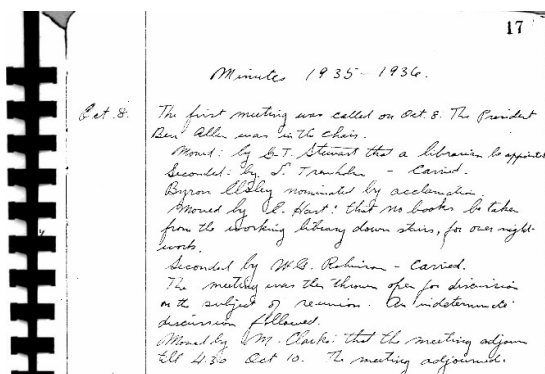 17
Minutes 1935-1936.
Oct. 8. The first meeting was called on Oct. 8. The President
Ben Allen was in the chair.
Moved: by G.T. Stewart that a librarian be appointed
Seconded: by. S. Trenholm - Carried.
Byron nominated by acclamation.
Moved by E. Hart: that no books be taken
from the working library down stairs, for over night-
work.
Seconded by W.G. Robinson - Carried.
The meeting was then thrown open for discussion
on the subject of reunion. An indeterminate
discussion followed.
Moved by M. Clarke: that the meeting adjourn
till 4.30 Oct 10. The meeting adjourned.